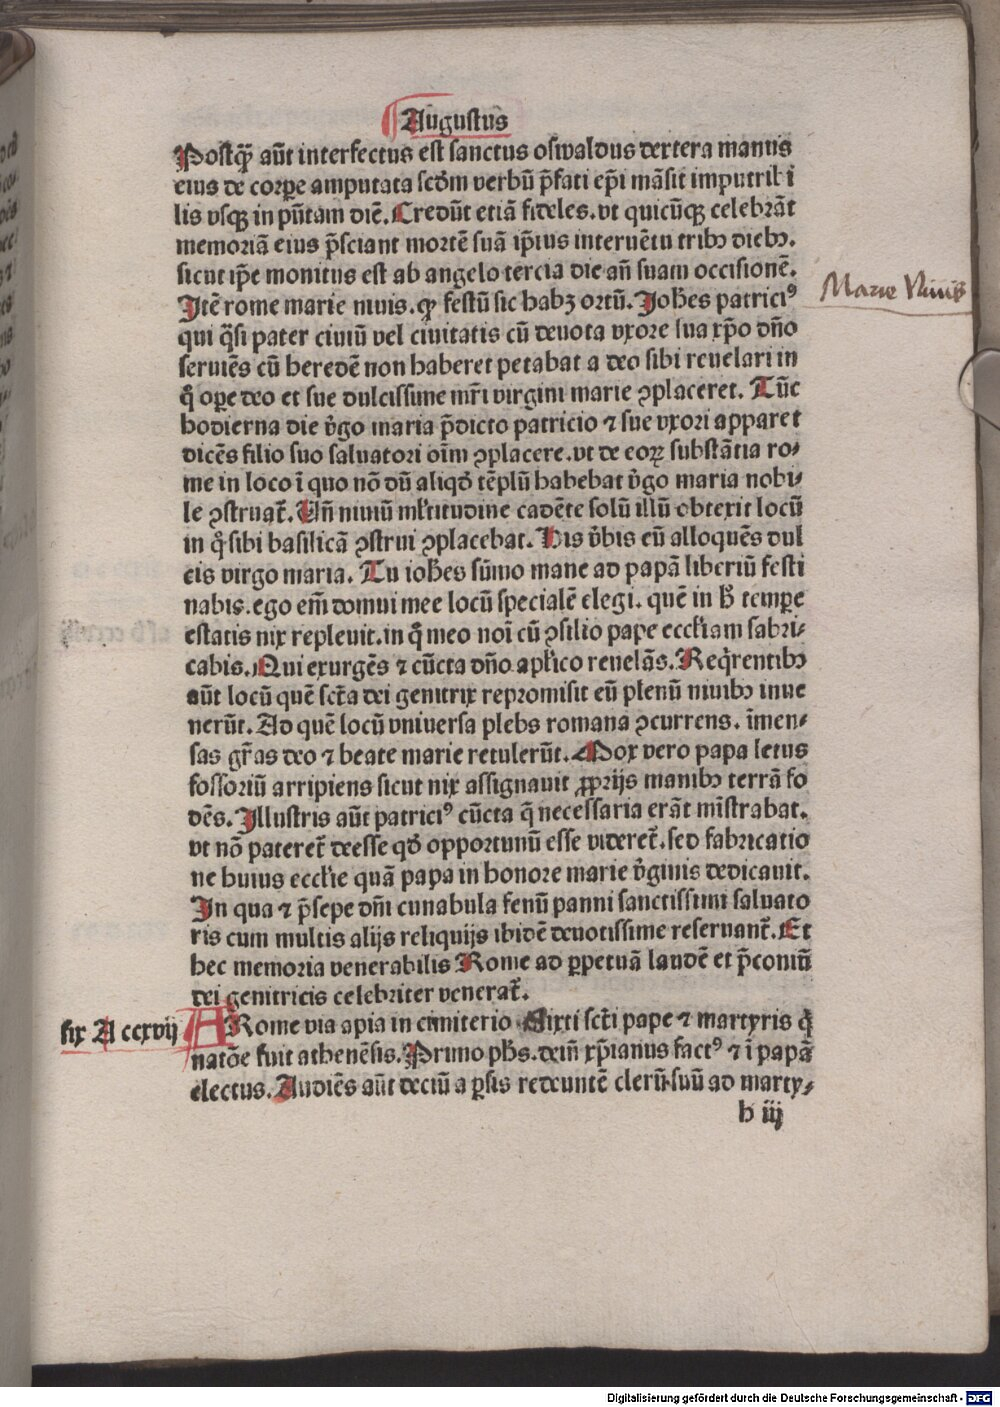 Augustus
Postq̃ aūt interfectus est sanctus oswaldus dextera manus
eius de corpe amputata scd̄m verbū p̄fati ep̄i māsit imputribi
lis vsqꝫ in pn̄tam diē. Credūt etiā fideles. vt quicūqꝫ celebrāt
memoriā eius p̄sciant mortē suā ip̄ius interuētu tribꝫ diebꝫ.
sicut ip̄e monitus est ab angelo tercia die an̄ suam occisionē.
Itē rome marie niuis. qꝛ festū sic habꝫ ortū. Joh̄es patriciꝰ
qui q̄si pater ciuiū vel ciuitatis cū deuota vxore sua xp̄o dn̄o
seruiēs cū heredē non haberet petabat a deo sibi reuelari in
q̊ ope deo et sue dulcissime mr̄i virgini marie ꝯplaceret. Tūc
hodierna die v̄go maria p̄dicto patricio ⁊ sue vxori apparet
dicēs filio suo saluatori oīm ꝯplacere. vt de eoꝝ substātia ro⸗
me in loco ī quo nō dū aliqd̄ tēplū habebat v̄go maria nobi⸗
le ꝯstruat̄. Un̄ niuiū ml̄titudine cadēte solū illū obtexit locū
in q̊ sibi basilicā ꝯstrui ꝯplacebat. His v̄bis eū alloquēs dul
cis virgo maria. Tu ioh̄es sūmo mane ad papā liberiū festi
nabis. ego em̄ domui mee locū specialē elegi. quē in h̊ tempe
estatis nix repleuit. in q̊ meo noī cū ꝯsilio pape eccl̄iam fabri⸗
cabis. Qui exurgēs ⁊ cūcta dn̄o ap̄lico reuelās. Req̄rentibꝫ
aūt locū quē sct̄a dei genitrix repromisit eū plenū niuibꝫ inue
nerūt. Ad quē locū vniuersa plebs romana ꝯcurrens. īmen⸗
sas gr̄as deo ⁊ beate marie retulerūt. Mox vero papa letus
fossoriū arripiens sicut nix assignauit ꝓprijs manibꝫ terrā fo
dēs. Illustris aūt patriciꝰ cūcta q̄ necessaria erāt mīstrabat.
vt nō pateret̄ deesse qd̄ opportunū esse videret̄. sed fabricatio
ne huius eccl̄ie quā papa in honore marie v̄ginis dedicauit.
In qua ⁊ p̄sepe dn̄i cunabula fenū panni sanctissimi saluato
ris cum multis alijs reliquijs ibidē deuotissime reseruant̄. Et
hec memoria venerabilis Rome ad ꝑpetuā laudē et p̄coniū
dei genitricis celebriter venerat̄.
fix A ccxvij
A Rome via apia in cimiterio Sixti sct̄i pape ⁊ martyris q̄
natōe fuit athenēsis. Primo ph̄s. dein̄ xp̄ianus factꝰ ⁊ ī papā
electus. Audiēs aūt deciū a ꝑsis redeuntē clerū suū ad marty⸗
h iij
Marie Niuis
Digitalisierung gefördert durch die Deutsche Forschungsgemeinschaft - DFG